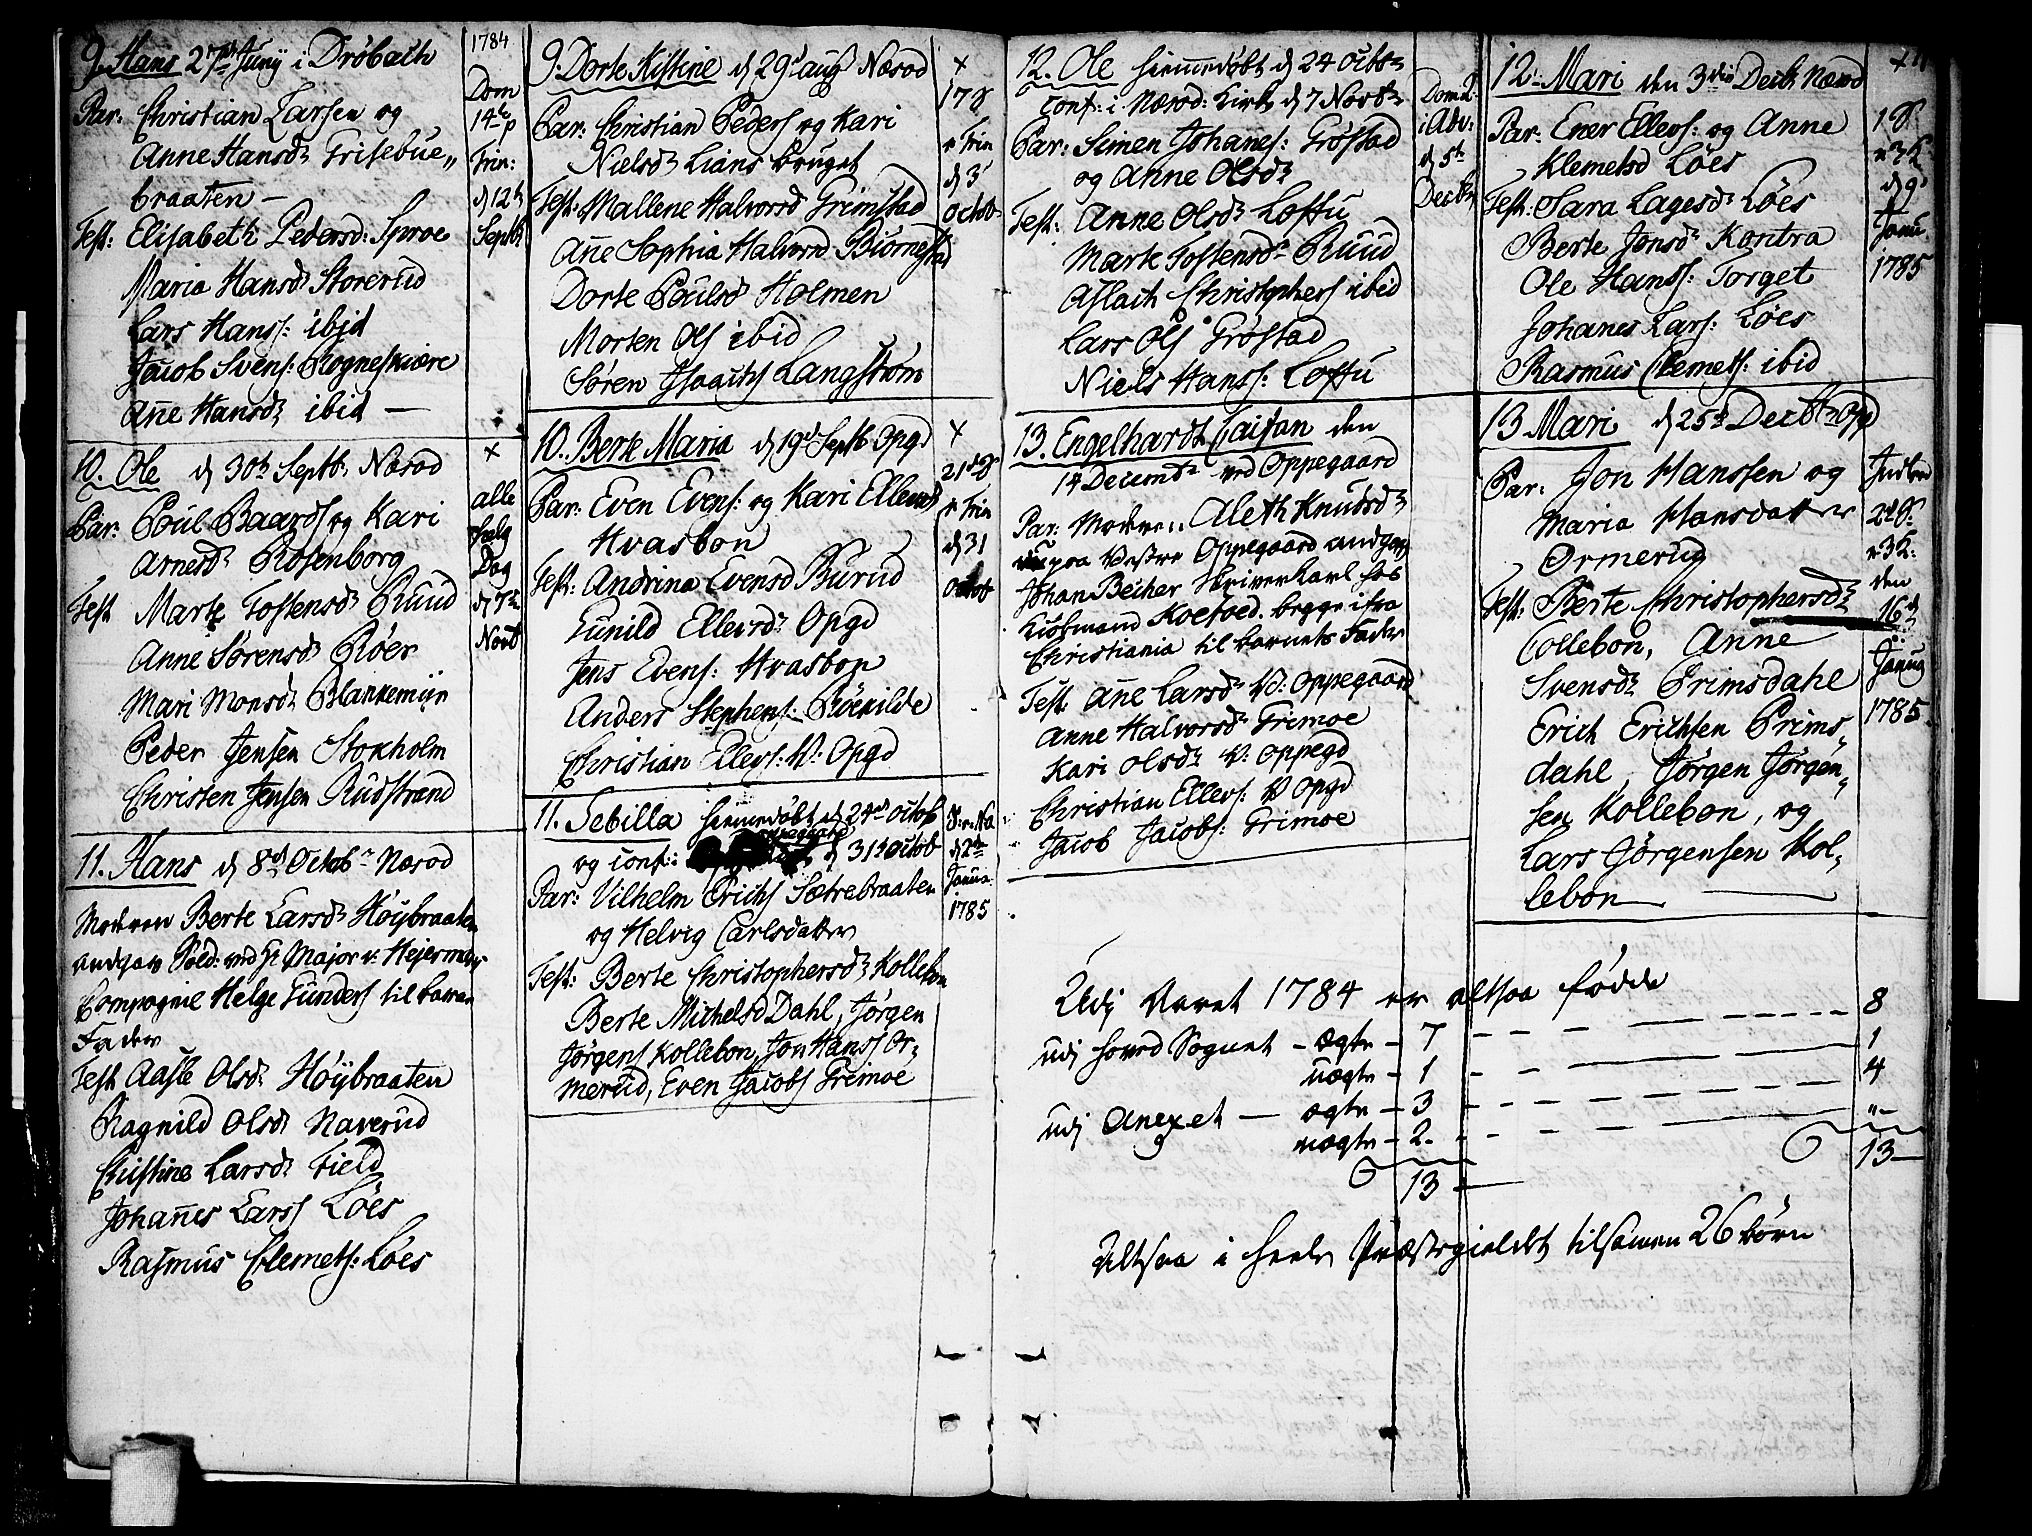 9. Hans 27de Junij i Drøbach
Par: Christian Larsen og
Anne Hansd: Grisebue„
braaten —
Test: Elisabeth Pedersd: Sproe
Maria Hansd: Storerud
Lars Hanss: ibid
Jacob Svens: Rogneskiære
Añe Hansd: ibid —
1784
Dom
14de p
Trin:
d 12te
Septbr
10. Ole d 30te Septbr Næsod
Par: Poul Baards og Kari
Arnesd: Rosenborg
Test Marte Tostensd: Ruud
Anne Sørensd: Røer
Mari Monsd: Blankemijr
Peder Jensen Stoxholm
Christen Jensen Rudstrand
×
alle
Helg
Dag
d 7de
Novb
11. Hans d 8de Octobr Næsod
Moderen Berte Larsd: Høybraaten
angav Sold: ved Hr Major v: Hejermans
Compagnie Helge Gunders til barnets
Fader
Test Aasle Olsd: Høybraaten
Ragnild Olsd: Naverud
Christine Larsd: Field
Johañes Larss Løes
Rasmus Clemets: Løes
9. Dorte Kistine d 29de aug Næsod
Par: Christian Peders og Kari
Nielsd: Lians bruget
Test: Mallene Halvorsd Grimstad
Añe Sophia Halvorsd Biørnestad
Dorte Poulsd Holmen
Morten Ols ibid
Søren Isaachs Langstrøm
×
17 S
p Trin
d 3
Octob
10. Berte Maria d 19de Septb Opgd
Par: Even Evens: og Kari Ellevsd
Hvasbon
Test: Andrina Evensd Burud
Gunild Ellevsd: Opgd
Jens Evens: Hvasbon
Anders Stephens: Röeskilde
Christian Ellevs: V: Opgd
×
21de S
p Trin
d 31
Octob
11. Sebilla hiemmedøbt d 24de Octob
og conf: d 31te Octob
Par: Vilhelm Erichs Sætrebraaten
og Helvig Carlsdatter
Test: Berte Christophersd: Kollebon
Berte Michelsd Dahl, Jørgen
Jørgens Kollebon, Jon Hanss Or„
merud, Even Jacobs Grimoe
S: e: Na
d 2de
Janua
1785
12. Ole hiemmedøbt d 24 Octbr
conf: i Næsod: Kirke d 7 Novbr
Par: Simen Johanes: Grøstad
og Anne Olsd:
Test: Anne Olsd: Loftu
Marte Tostensd: Ruud
Aslach Christophers ibid
Lars Ols Grøstad
Niels Hanss: Loftu
Dom 2
i Adv:
d 5te
Decbr
13. Engelhardt Caisan den
14 Decembr ved Oppegaard
Par: Moderen Aleth Knudsd:
paa Vestre Oppegaard angav
Johan Becher Skriverkarl hos
Kiøbmand Koefoed. begge ifra
Christiania til barnets Fader
Test Añe Larsd: V: Oppegaard
Anne Halvorsd: Grimoe
Kari Olsd: V: Oppegd
Christian Ellevs: V Opgd
Jacob Jacobs: Grimoe
12. Mari den 3die Decbr Næsod
Par: Ener Ellevs: og Anne
Klemetsd Løes
Test: Sara Lagesd: Løes
Berte Jonsd: Kontra
Ole Hanss: Torget
Johanes Lars: Løes
Rasmus Clemets: ibid
×
1 S
p 3 K
d 9
Janu.
1785
13 Mari d 25de Decbr Opg
Par. Jon Hanssen og
Maria Hansdatter
Ormerud
Test: Berte Christophersd:
Collebon, Anne
Svensd: Grimsdahl
Erich Erichsen Grims„
dahl, Jørgen Jørgen„
sen Kollebon, og
Lars Jørgensen Kol„
lebon —
2d S
p 3 K:
den
16de
Janua
1785
Udj Aaret 1784 er altsaa fødde
udj hoved Sognet — ægte — 7 — 8
uægte — 1 — 1
udj Anexet — ægte — 3 — 4
uægte — 2 — „
13 — 13 —
Altsaa i heele Præstegieldet tilsamen 26 børn